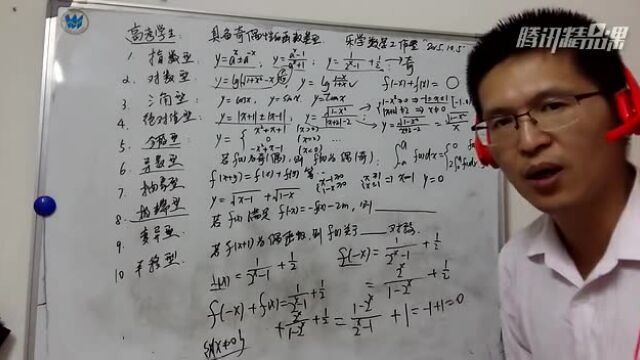 腾讯精品课
高考学生: 具备奇偶性的函数类型 乐学数学工作室 2015.10.5
1 指数型: y=a^x±a^-x, y=(a^x-1)/(a^x+1), y=1/(2^x-1)+1/2
2. 对数型: y=lg(√(1+x²)-x), y=lg(1-x)/(1+x) f(-x)+f(x)=0
3 三角型: y=cosx, y=sinx, y=tanx
4 绝对值型: y=|x+1|±|x-1|, y=√(1-x²)/(|x+2|-2)
5 分段型: y={ x²+x+1 (x>0) 0 (x=0) -x²+x-1 (x<0)
6 导数型 若f(x)为奇(偶), 则f'(x)为偶(奇);
7 抽象型 f(x+y)=f(x)+f(y)等
8 极端型 y=√(x-1)+√(1-x) x=1 y=0
若f(x)满足 f(-x)=-f(x)-2m, 则
9 变异型
若f(x+1)为偶函数, 则f(x)关于____对称
10 平移型
f(x)=1/(2^x-1)+1/2 f(-x)=1/(2^-x-1)+1/2
=2^x/(1-2^x)+1/2
f(-x)+f(x)=1/(2^x-1)+1/2
+2^x/(1-2^x)+1/2=(1-2^x)/(2^x-1)+1=-1+1=0